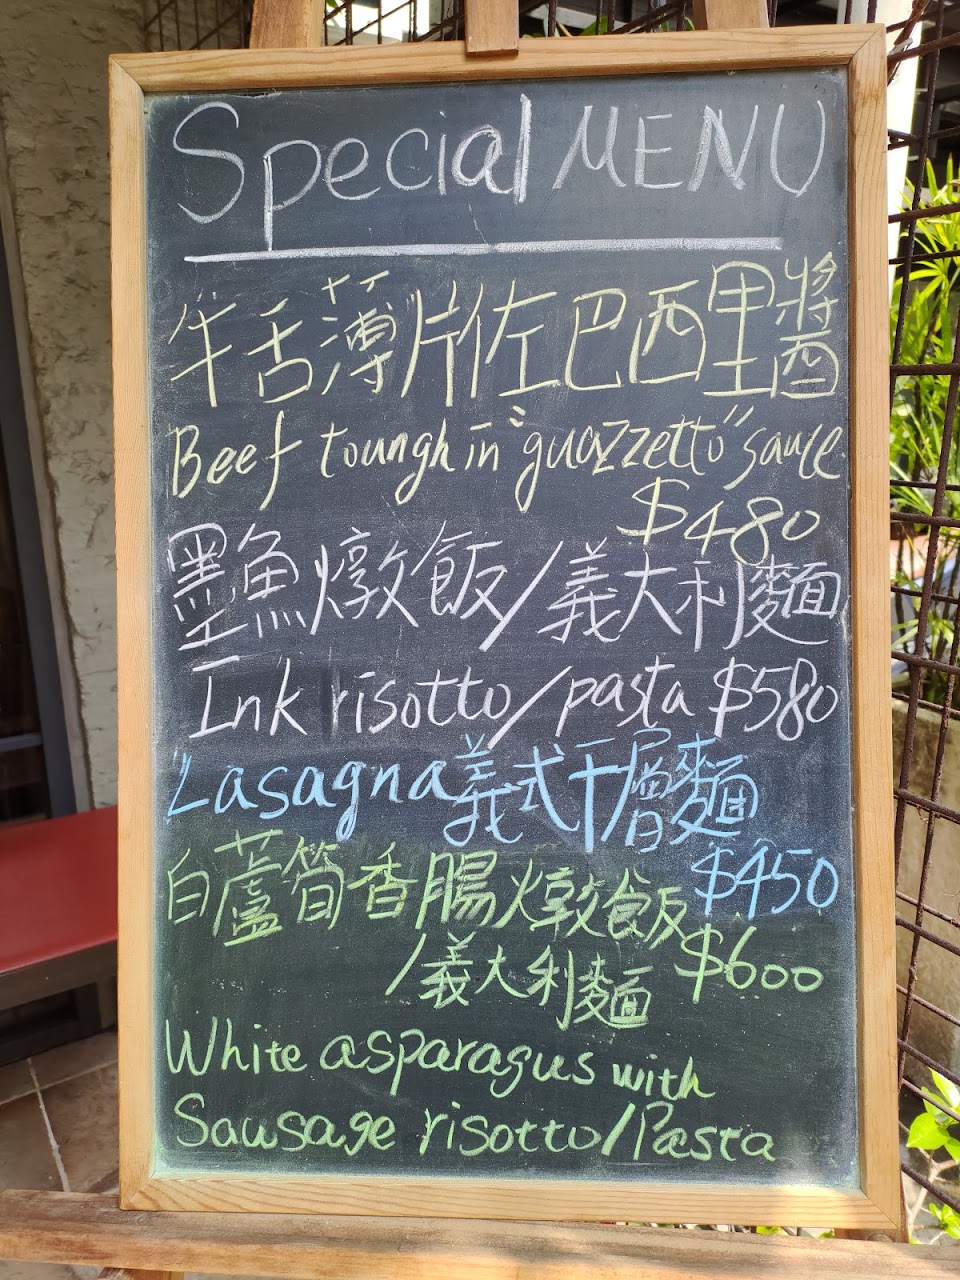 Special MENU
牛舌薄片佐巴西里醬
Beef toungh in "guazzetto" sauce
$480
墨魚燉飯/義大利麵
Ink risotto/pasta $580
Lasagna義式千層麵
$450
白蘆筍香腸燉飯
/義大利麵 $600
White asparagus with
Sausage risotto/Pasta